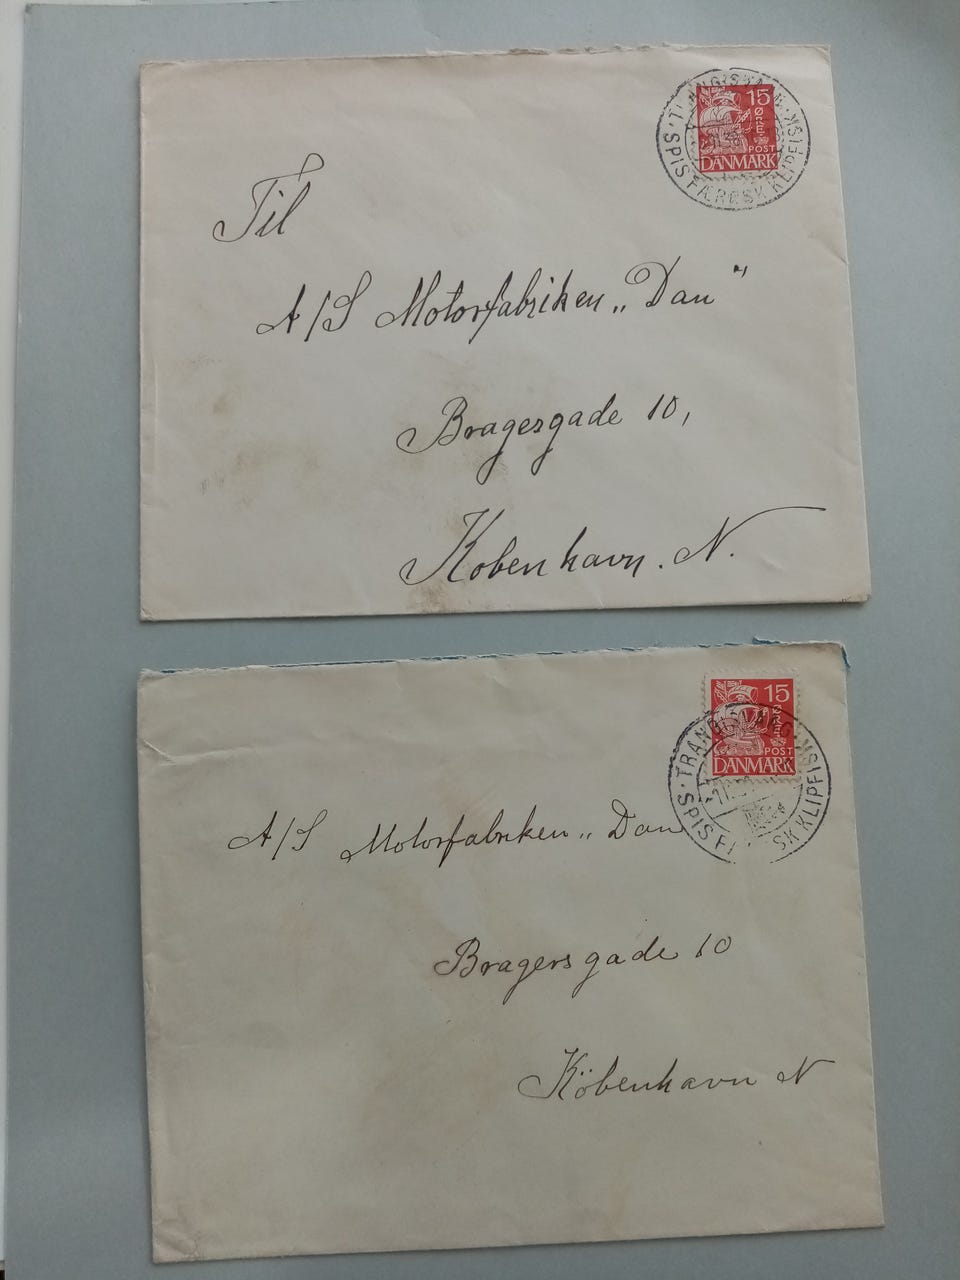 15
ØRE
POST
DANMARK
SPIS FÆRØSK KLIPFISK
Til
A/S Motorfabriken „Dan"
Bragesgade 10,
Kobenhavn. N.
15
ØRE
POST
DANMARK
SPIS SK KLIPFISK
A/S Motorfabriken „ Dan
Bragersgade 10
Köbenhavn N